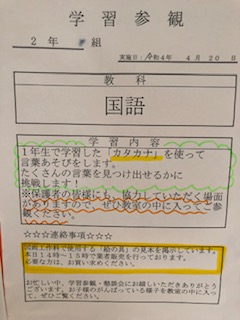 学習参観
２年 組
実施日：令和４年 ４月２０日
教科
国語
学習内容
１年生で学習した「カタカナ」を使って
言葉あそびをします。
たくさんの言葉を見つけ出せるかに
挑戦します！
※保護者の皆様にも、協力していただく場面
がありますので、ぜひ教室の中に入ってご参
観ください。
☆☆☆連絡事項☆☆☆
図画工作科で使用する「絵の具」の見本を掲示しています。
本日１４時～１５時で業者販売を行っております。
必要な方は、お買い求めください。
お忙しい中、学習参観・懇談会にお越しいただきありがとう
ございます。お子様のがんばっている様子を教室の中に入っ
て、ぜひご覧ください。